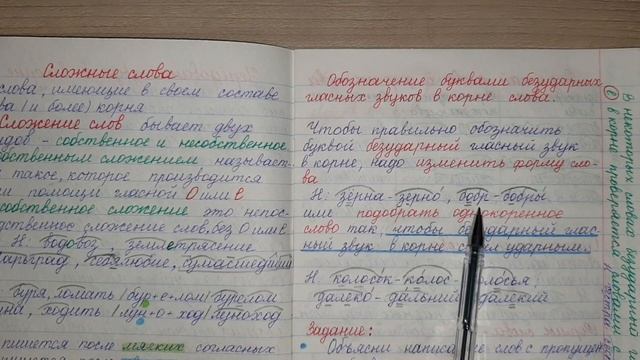 Сложные слова
слова, имеющие в своем составе
ва (и более) корня
Сложение слов бывает двух
идов - собственное и несобственное
обственным сложением называет-
такое, которое производится
и помощи гласной О или Е
собственное сложение это непос-
дственное сложение слов, без О или Е
Н: водовоз, землетрясение
арьград, себялюбие, сумасшедший
: буря, ломать /бур+е+лом/ бурелом
уна, ходить /лун+о+ход/ луноход
пишется после мягких согласных
Обозначение буквами безударных
гласных звуков в корне слова.
Чтобы правильно обозначить
буквой безударный гласный звук
в корне, надо изменить форму сло-
ва
Н: зёрна - зерно, бобр - бобры
или подобрать однокоренное
слово так, чтобы безударный глас-
ный звук в корне стал ударным.
Н: колосок - колос - колосья;
далеко - дальний - далёкий
Задание:
Объясни слов с
В некоторых словах
в корне проверяется